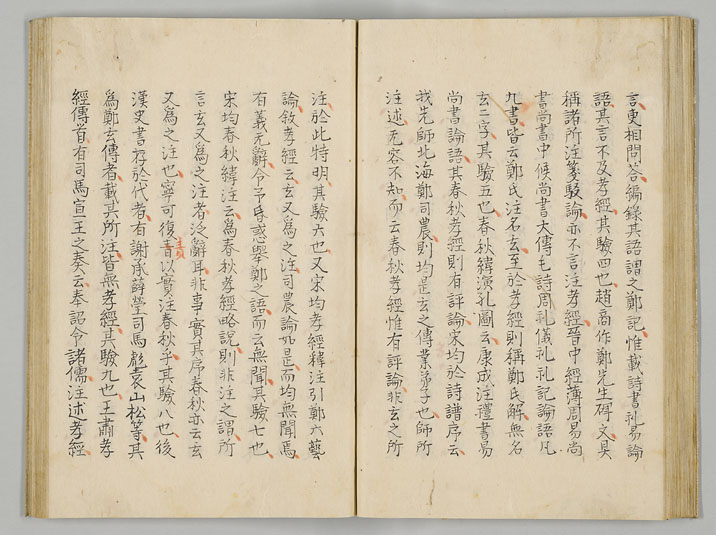 言更相問荅編錄其語謂之鄭記惟載詩書礼易論
語其言不及孝經其驗四也趙商作鄭先生碑文具
稱諸所注箋駮論亦不言注孝經晉中經薄周易尚
書尚書中候尚書大傳毛詩周礼儀礼礼記論語凡
九書皆云鄭氏注名玄至於孝經則稱鄭氏解無名
玄二字其驗五也春秋緯演孔圖云康成注禮書易
尚書論語其春秋孝經則有評論宋均於詩譜序云
我先師北海鄭司農則均是玄之傳業弟子也師所
注述无容不知而云春秋孝經惟有評論非玄之所
注於此特明其驗六也又宋均孝經緯注引鄭六藝
論敘孝經云玄又爲之注司農論如是而均無聞焉
有義无辭令予昏惑舉鄭之語而云無聞其驗七也
宋均春秋緯注云爲春秋孝經略說則非注之謂所
言玄又爲之注者泛辭耳非事實其序春秋亦云玄
又爲之注也寧可復責以實注春秋乎其驗八也後
漢史書存於代者有謝承薛瑩司馬彪袁山松等其
爲鄭玄傳者載其所注皆無孝經其驗九也王肅孝
經傳首有司馬宣王之奏云奉詔令諸儒注述孝經